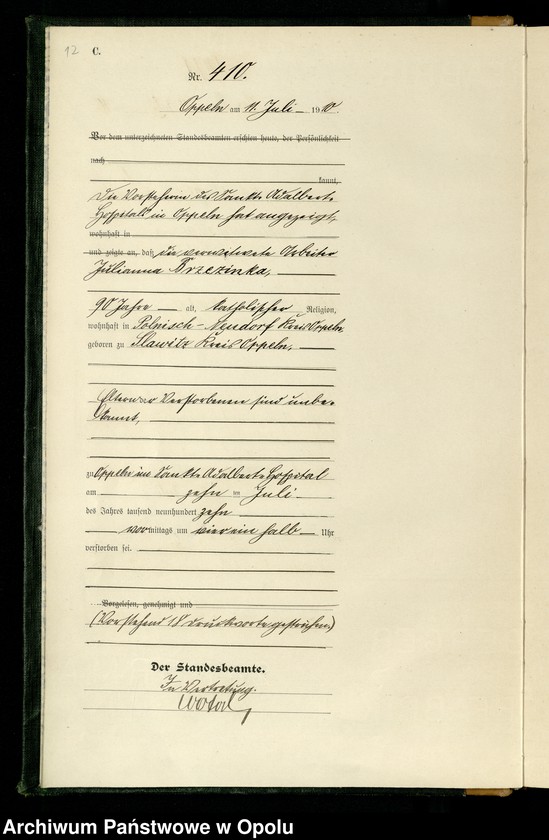 12
C.
Nr. 410.
Oppeln am 11. Juli 1910.
Vor dem unterzeichneten Standesbeamten erschien heute, der Persönlichkeit
nach
kannt,
Die Vorsteherin des Sankt Adalbert-
Hospitals in Oppeln hat angezeigt,
wohnhaft in
und zeigte an, daß die verwitwete Arbeiter
Julianna Brzezinka,
90 Jahre alt, katholischer Religion,
wohnhaft in Polnisch-Neudorf Kreis Oppeln
geboren zu Slawitz Kreis Oppeln,
Eltern der Verstorbenen sind unbe-
kannt,
zu Oppeln im Sankt Adalbert-Hospital
am zehn ten Juli
des Jahres tausend neunhundert zehn
vormittags um vier ein halb Uhr
verstorben sei.
Vorgelesen, genehmigt und
(Vorstehend 18 Druckworte gestrichen)
Der Standesbeamte.
In Vertretung.
Archiwum Państwowe w Opolu